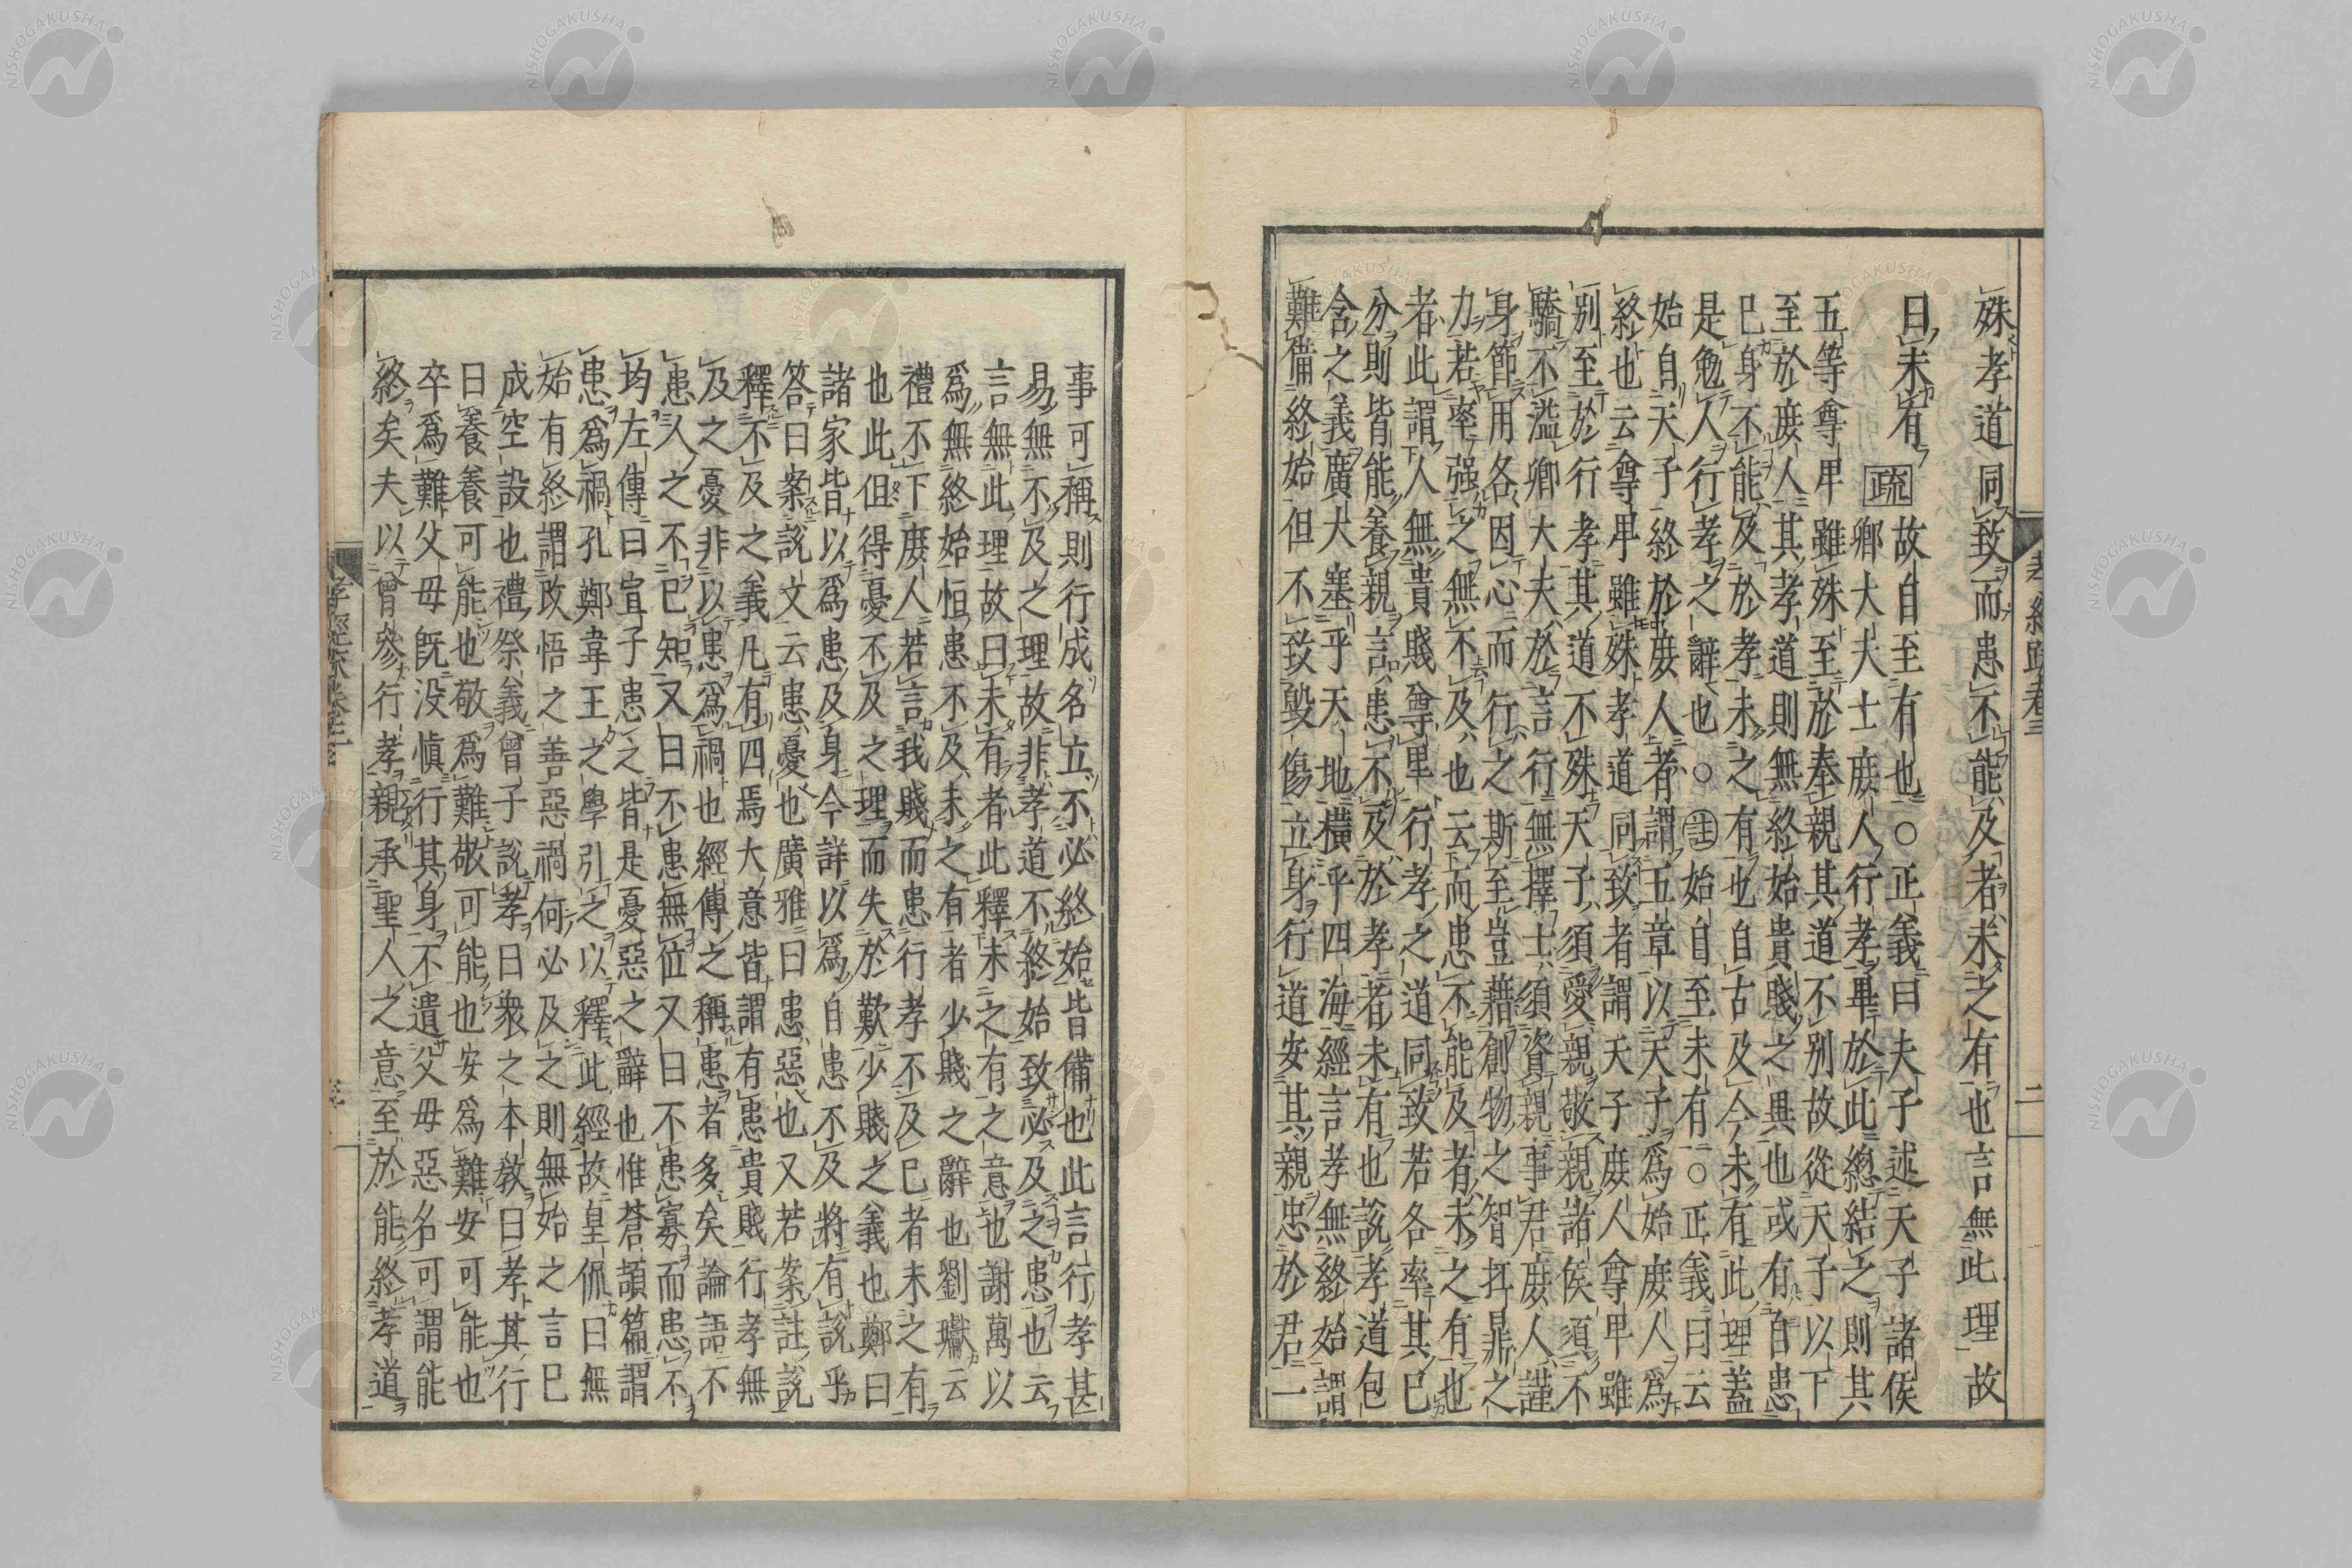 孝經疏卷三
二
殊孝道同致而患不能及者未之有也言無此理故
曰未有疏故自至有也○正義曰夫子述天子諸侯
卿大夫士庶人行孝畢於此總結之則其
五等尊卑雖殊至於奉親其道不别故從天子以下
至於庶人其孝道則無終始貴賤之異也或有自患
已身不能及於孝未之有也自古及今未有此理蓋
是勉人行孝之辭也○註始自至未有○正義曰云
始自天子終於庶人者謂五章以天子爲始庶人爲
終也云尊卑雖殊孝道同致者謂天子庶人尊卑雖
别至於行孝其道不殊天子須愛親敬親諸侯須不
驕不溢卿大夫於言行無擇士須資親事君庶人謹
身節用各因心而行之斯至豈藉創物之智扛鼎之
力若率强之無不及也云而患不能及者未之有也
者此謂人無貴賤尊卑行孝之道同致若各率其已
分則皆能養親言患不及於孝者未有也說孝道包
含之義廣大塞乎天地橫乎四海經言孝無終始謂
難備終始但不致毀傷立身行道安其親忠於君一
事可稱則行成名立不必終始皆備也此言行孝甚
易無不及之理故非孝道不終始致必及之患也云
言無此理故曰未有者此釋未之有之意也謝萬以
爲無終始恒患不及未之有者少賤之辭也劉瓛云
禮不下庶人若言我賤而患行孝不及已者未之有
也此但得憂不及之理而失於歎少賤之義也鄭曰
諸家皆以爲患及身今詳以爲自患不及將有說乎
答曰案說文云患憂也廣雅曰患惡也又若案註說
釋不及之義凡有四焉大意皆謂有患貴賤行孝無
及之憂非以患爲禍也經傳之稱患者多矣論語不
患人之不已知又曰不患無位又曰不患寡而患不
均左傳曰宣子患之皆是憂惡之辭也惟蒼頡篇謂
患爲禍孔鄭韋王之學引之以釋此經故皇侃曰無
始有終謂改悟之善惡禍何必及之則無始之言已
成空設也禮祭義曾子說孝曰衆之本教曰孝其行
曰養養可能也敬爲難敬可能也安爲難安可能也
卒爲難父母既没慎行其身不遺父母惡名可謂能
終矣夫以曾參行孝親承聖人之意至於能終孝道